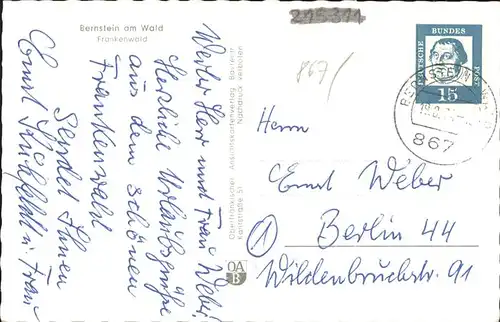 Bernstein am Wald
Frankenwald
215311
867/
DEUTSCHE
BUNDES
POST
15
867
Werter Herr und Frau Weber!
Herzliche Urlaubsgrüße
aus dem schönen
Frankenwald
Sendet Ihnen
Ernst u. Frau
Oberfränkischer Ansichtskartenverlag Bayreuth
Nachdruck verboten
OA
B
Herrn
Ernst Weber
1 Berlin 44
Wildenbruchstr. 91